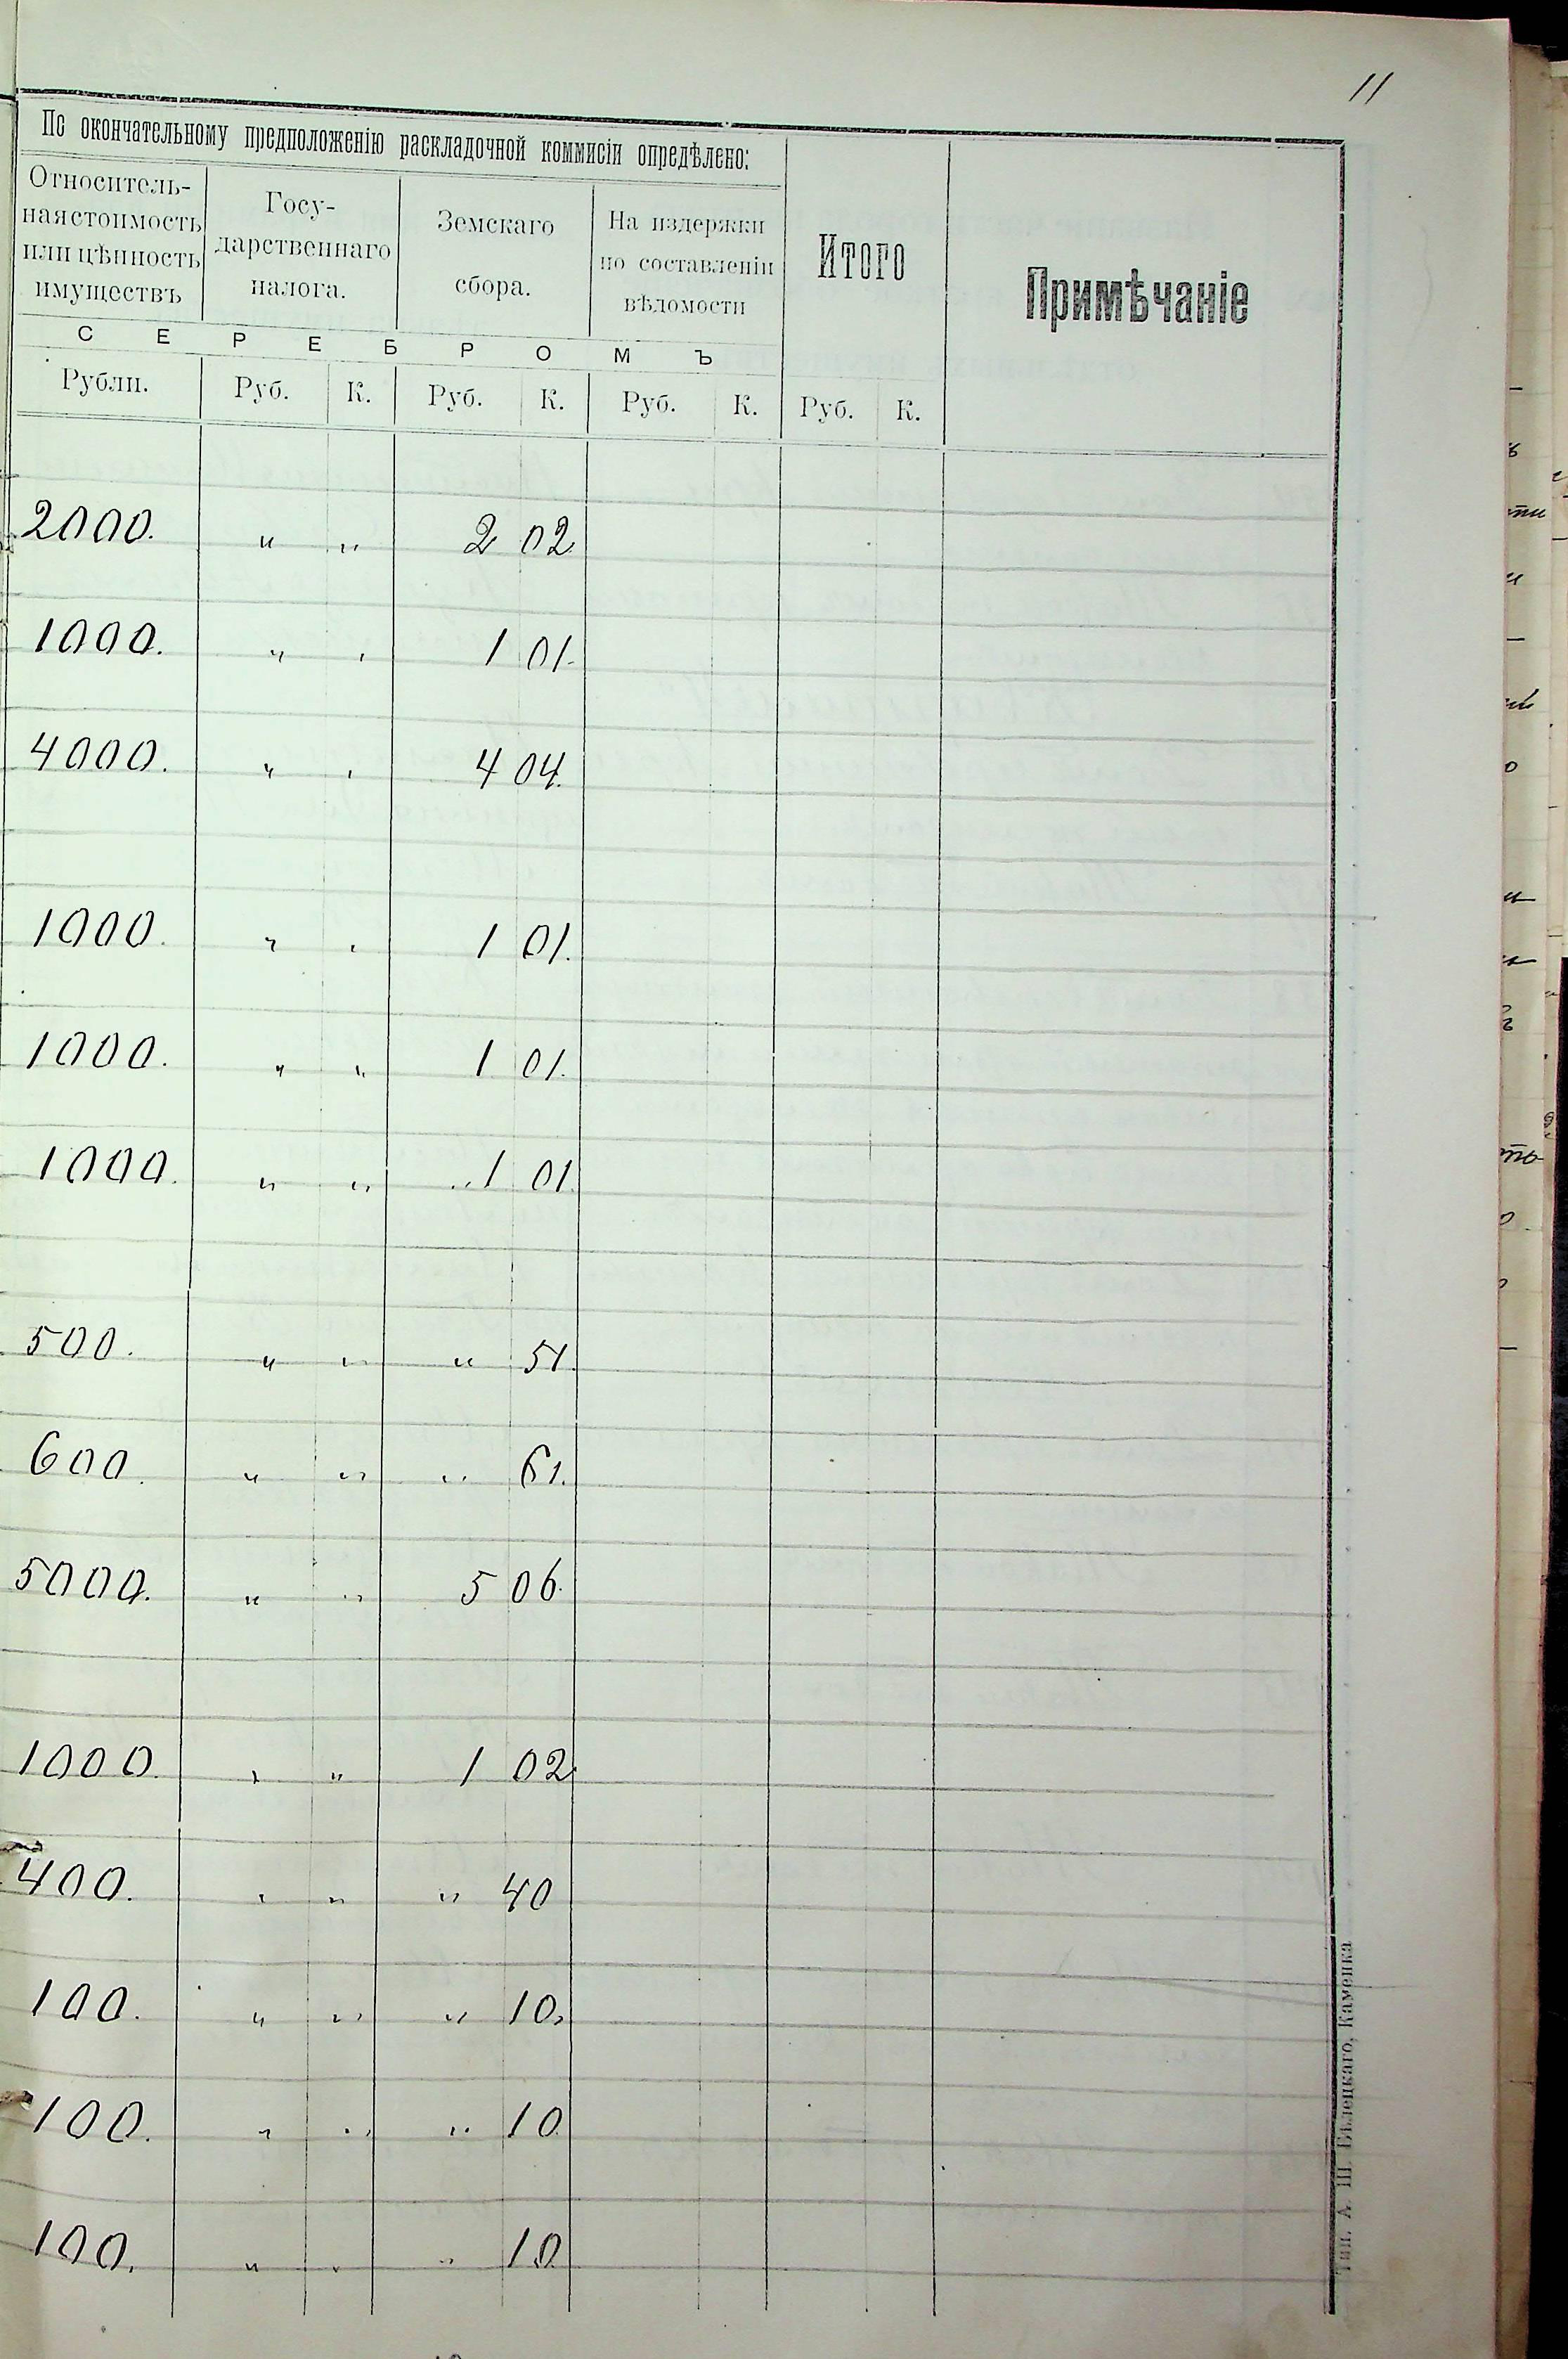 11
По окончательному предположенію раскладочной коммисіи опредѣлено:
Относитель-
ная стоимость
или цѣнность
имуществъ
Госу-
дарственнаго
налога.
Земскаго
сбора.
На издержки
по составленіи
вѣдомости
Итого
Примѣчаніе
С Е Р Е Б Р О М Ъ
Рубли. Руб. К. Руб. К. Руб. К. Руб. К.
2000. " " 2 02.
1000. " " 1 01.
4000. " " 4 04.
1000. " " 1 01.
1000. " " 1 01.
1000. " " 1 01.
500. " " " 51.
600. " " " 61.
5000. " " 5 06.
1000. " " 1 02.
400. " " " 40
100. " " " 10.
100. " " " 10.
100. " " " 10.
Тип. А. Ш. Бѣлецкаго, Каменка